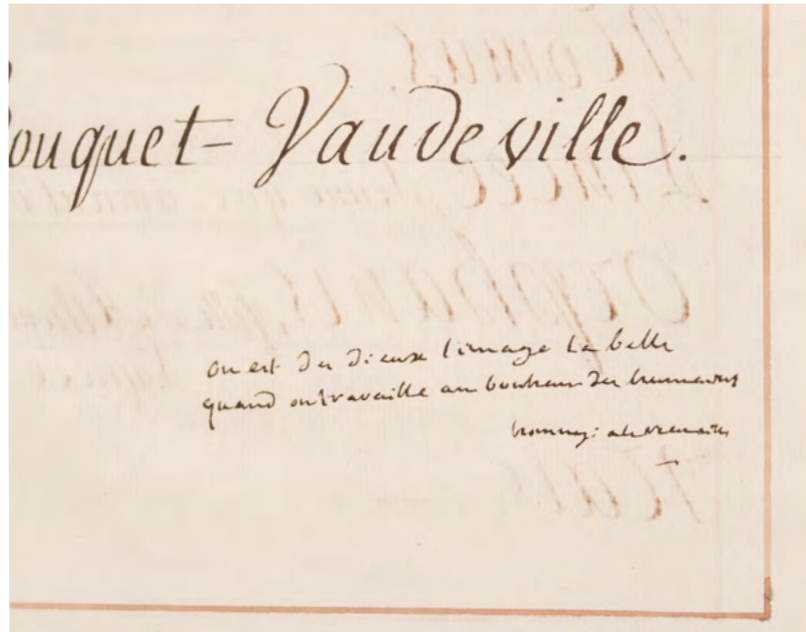 ouquet = Vaudeville.
on est des dieux l'image la belle
quand on travaille au bonheur des humains
hommage